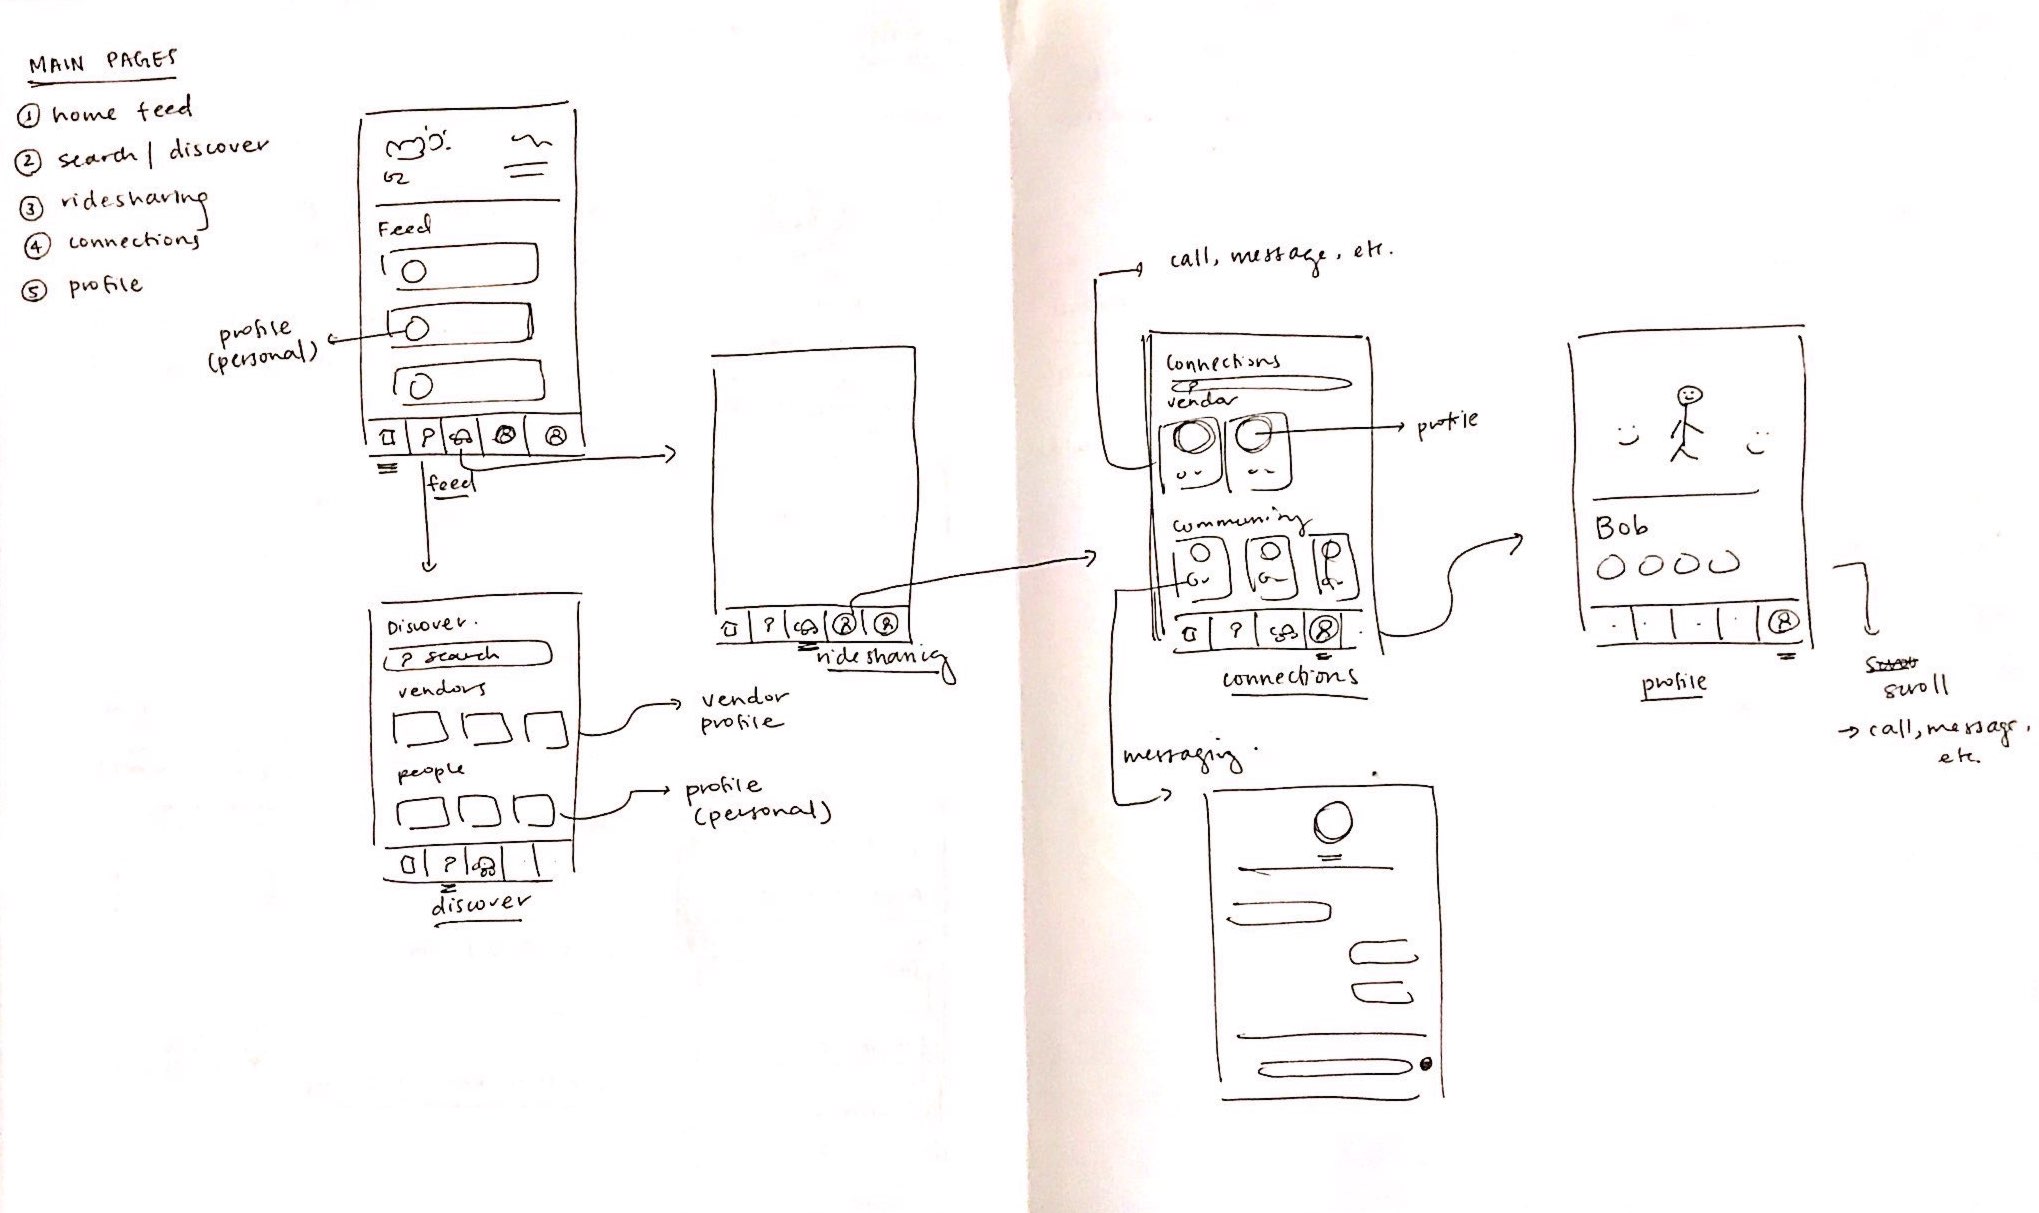 MAIN PAGES
① home feed
② search / discover
③ ridesharing
④ connections
⑤ profile
Feed
profile
(personal)
feed
Discover.
search
vendors
people
discover
vendor
profile
profile
(personal)
ridesharing
call, message, etc.
connections
vendor
profile
community
connections
messaging.
Bob
profile
scroll
→ call, message,
etc.